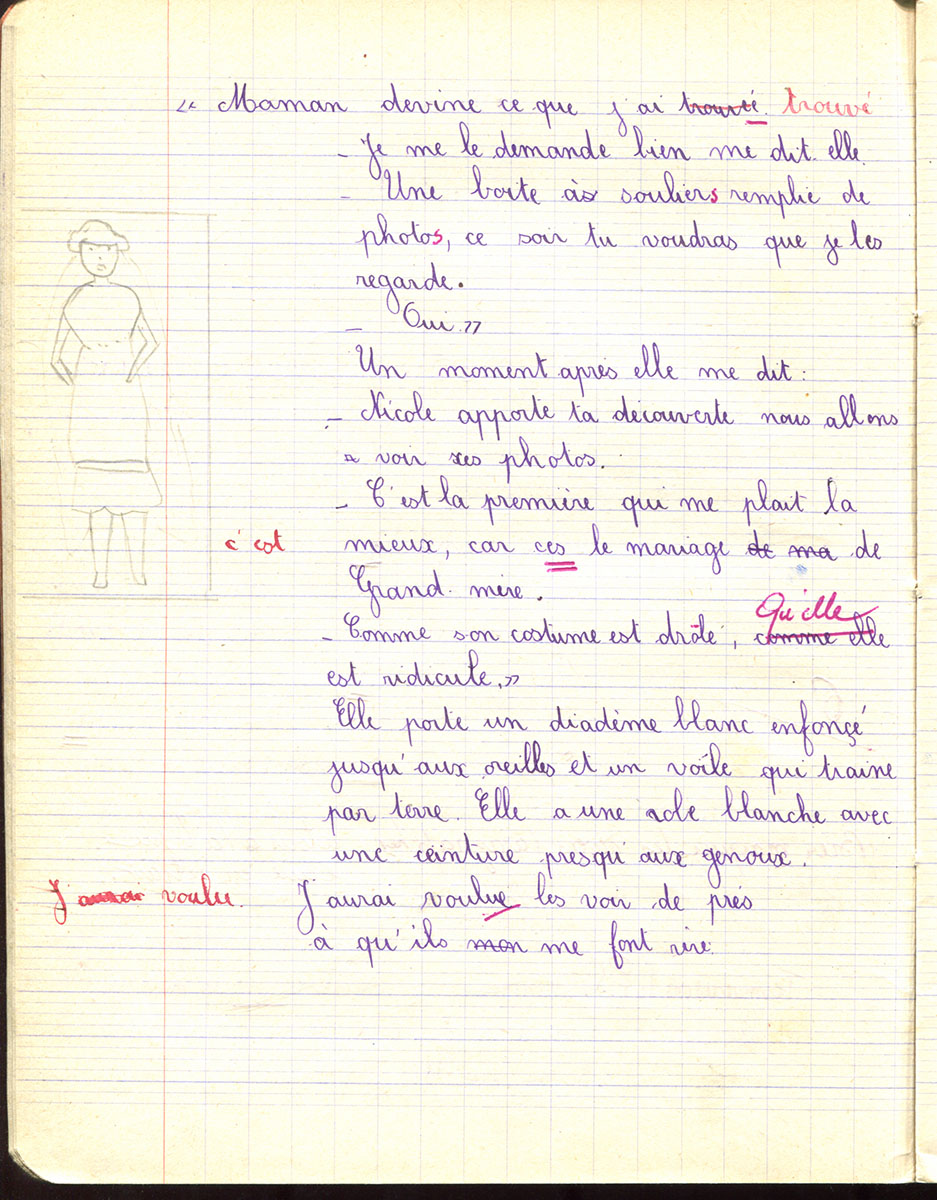 « Maman devine ce que j'ai trouvé. trouvé
- Je me le demande bien me dit elle
- Une boite à souliers remplie de
photos, ce soir tu voudras que je les
regarde.
- Oui. »
Un moment après elle me dit :
- Nicole apporte ta découverte nous allons
voir ses photos.
- C'est la première qui me plait la
c'est mieux, car ces le mariage de ma de
Grand. mère.
Qu'elle
- Comme son costume est drôle, comme elle
est ridicule. »
Elle porte un diadème blanc enfonçé
jusqu'aux oreilles et un voîle qui traine
par terre. Elle a une robe blanche avec
une ceinture presqu'aux genoux.
J'aurai voulu. J'aurai voulue les voir de près
à qu'ils mon me font rire.